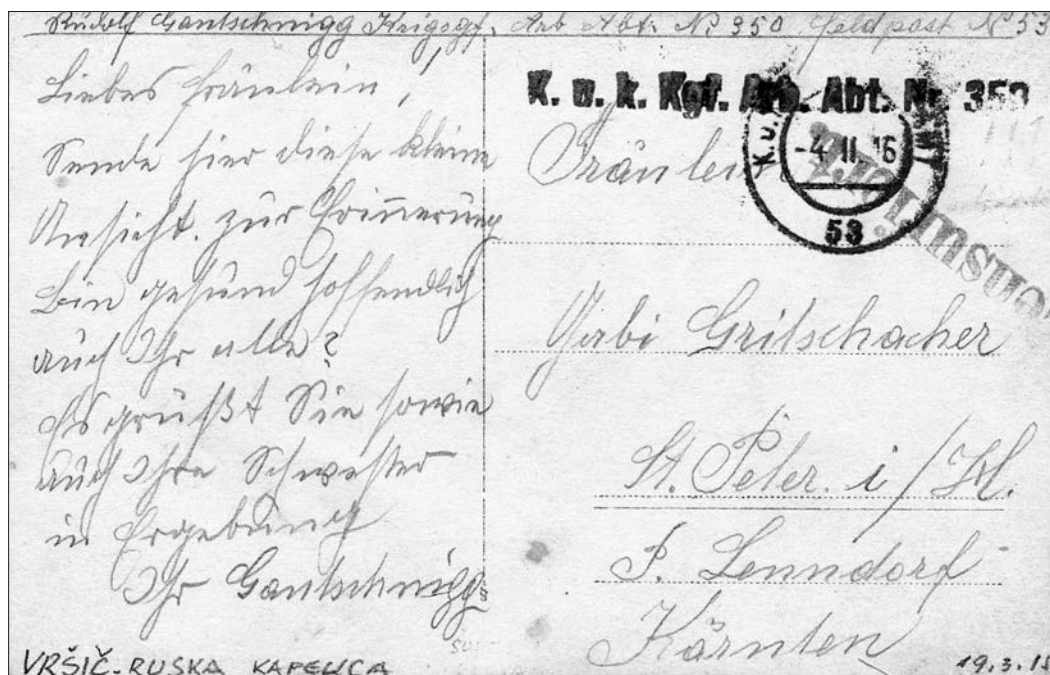 Rudolf Gantschnigg Krigsgf. Arb Abt. No 350 Feldpost No 53
Liebes Fräulein,
Sende hier diese kleine
Ansicht. zur Erinnerung
Bin gesund hoffendlich
auch Ihr alle?
Es grüßt Sie sowie
auch Ihre Schwester
in Ergebung
Ihr Gantschnigg
K. u. k. Kgf. Arb. Abt. Nr. 350
K. u.
-4. II. 16
53
Fräulein
Gritschacher
St. Peter. i/H.
P. Lenndorf
Kärnten
VRŠIČ-RUSKA KAPELICA